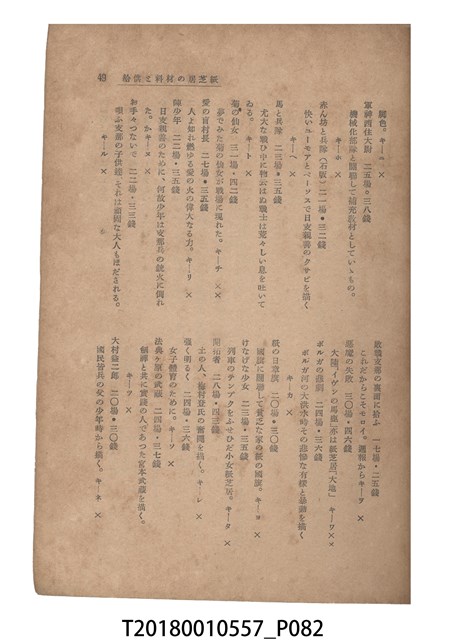 紙芝居の材料と供給
脚色。キーニ ×
軍神西住大尉 二五場・三八銭
機械化部隊と關聯して補充教材としていゝもの。
キーホ ×
赤ん坊と兵隊(石版)二一場・三二銭
快いユーモアとペーソスで日支親善のクサビを描く
キーヘ ×
馬と兵隊 二三場・三五銭
尤大な戰ひ中に物云はぬ戰士は荒々しい息を吐いて
ゐる。 キート ×
菊の仙女 三一場・四二銭
夢でみた菊の仙女が戰場に現れた。キーチ ××
愛の百村長 二七場・三五銭
人よ知れ燃ゆる愛の火の偉大なる力。キーリ ×
師少年 二二場・三五銭
日支親善のために、何故少年は支那兵の銃火に倒れ
た。か キーヌ ×
お手々つないで 二二場・三三銭
唄ふ支那の子供達、それは頑固な大人もほだされる。
キール ×
敗戰支那の裏面に拾ふ 一七場・二五銭
これだからこそセロイ。週報からキーヲ ×
惡魔の失敗 三〇場・四六銭
大陸「イワンの馬鹿」亦は紙芝居「大地」 キーワ××
ボルガの悲劇 二四場・三六銭
ボルガ河の大洪水時その悲慘な有樣と暴動を描く
キーカ ×
紙の日章旗 二〇場・三〇銭
國旗に關聯して貧乏な家の紙の國旗。キーヨ ×
けなげな少女 二三場・三五銭
列車のテンプクをふせひだ小女紙芝居。キータ ×
開拓者 二八場・四三銭
土の人、梅村登氏の奮鬪を描く。キーレ ×
強く明るく 二四場・三六銭
女子體育のために。キーソ ×
法典ヶ原の武藏 二四場・三七銭
劍禪と共に實踐の人であつた宮本武藏を描く。
キーツ ×
大村益二郎 二〇場・三〇銭
國民皆兵の父の少年時から描く。キーネ ×
T20180010557_P082